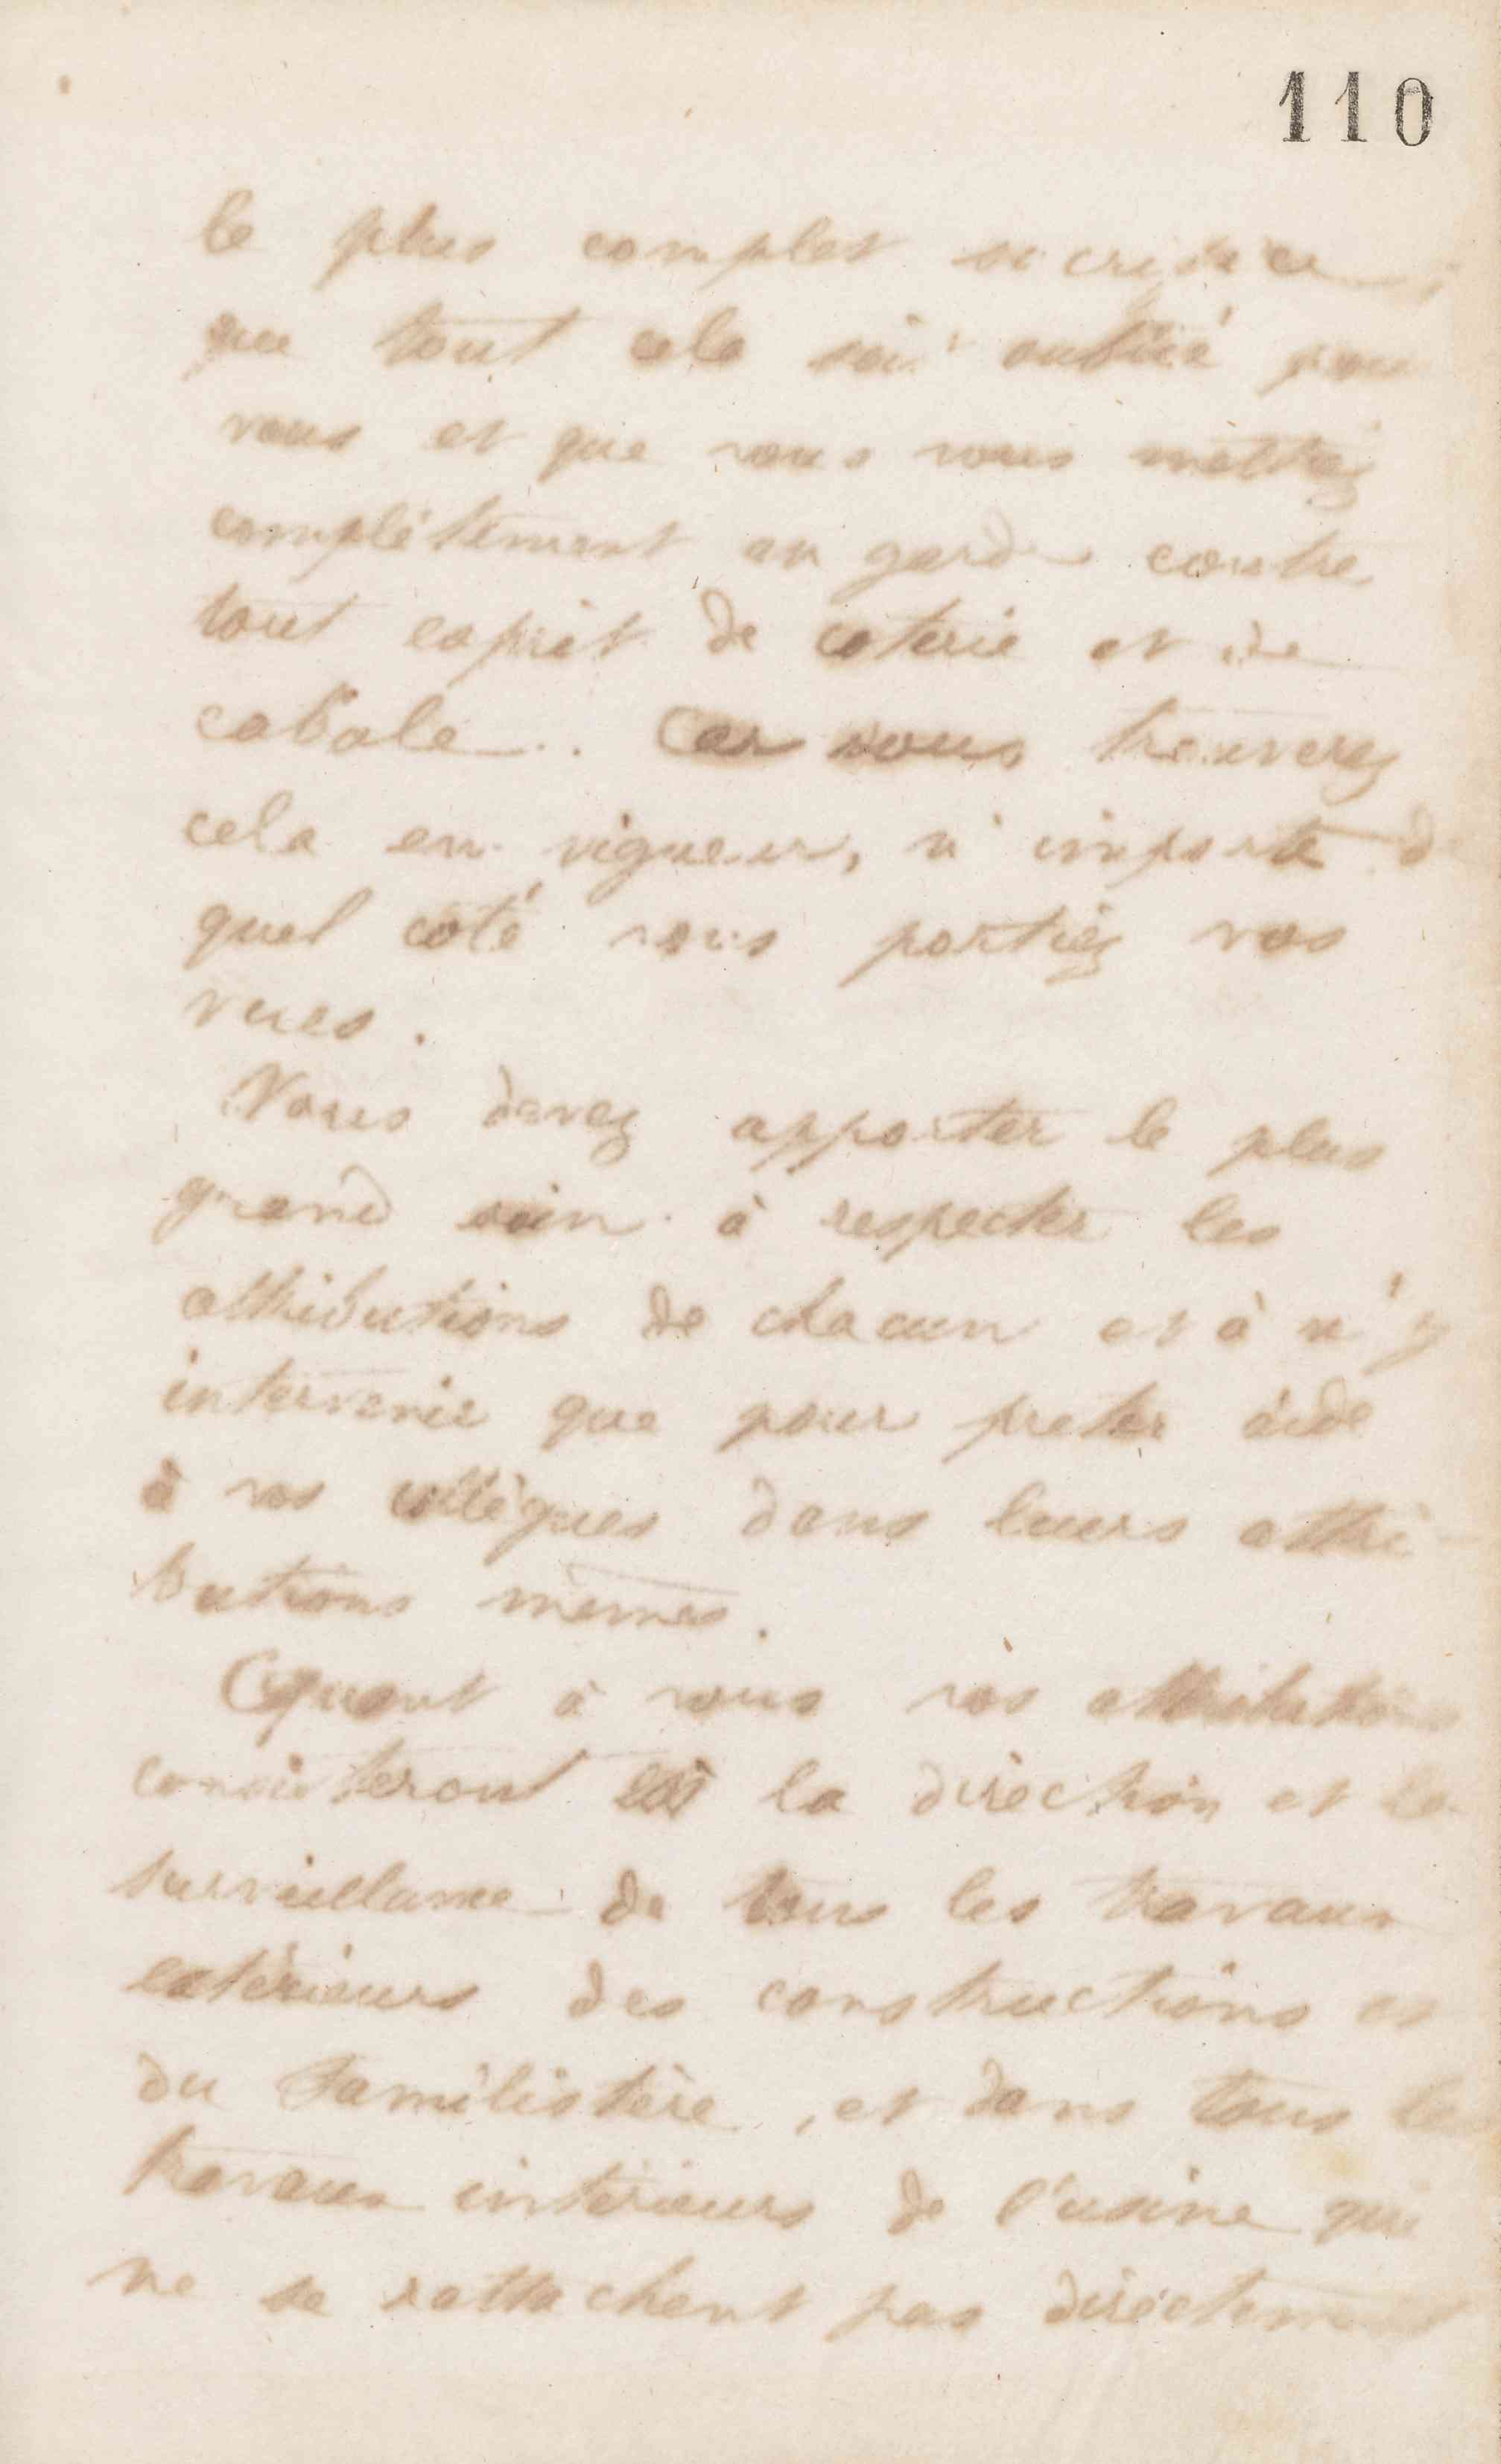 110
le plus complet sacrifice,
que tout cela soit oublié pour
vous et que vous vous mettiez
complètement en garde contre
tout esprit de coterie et de
cabale. Car vous trouverez
cela en vigueur, n'importe de
quel côté vous portiez vos
vues.
Vous devez apporter le plus
grand soin à respecter les
attributions de chacun et à n'y
intervenir que pour preter aide
à vos collègues dans leurs attri-
butions mêmes.
Quant à vous vos attributions
consisteront la direction et la
surveillance de tous les travaux
extérieurs des constructions et
du familistère, et dans tous les
travaux intérieurs de l'usine qui
ne se rattachent pas directement